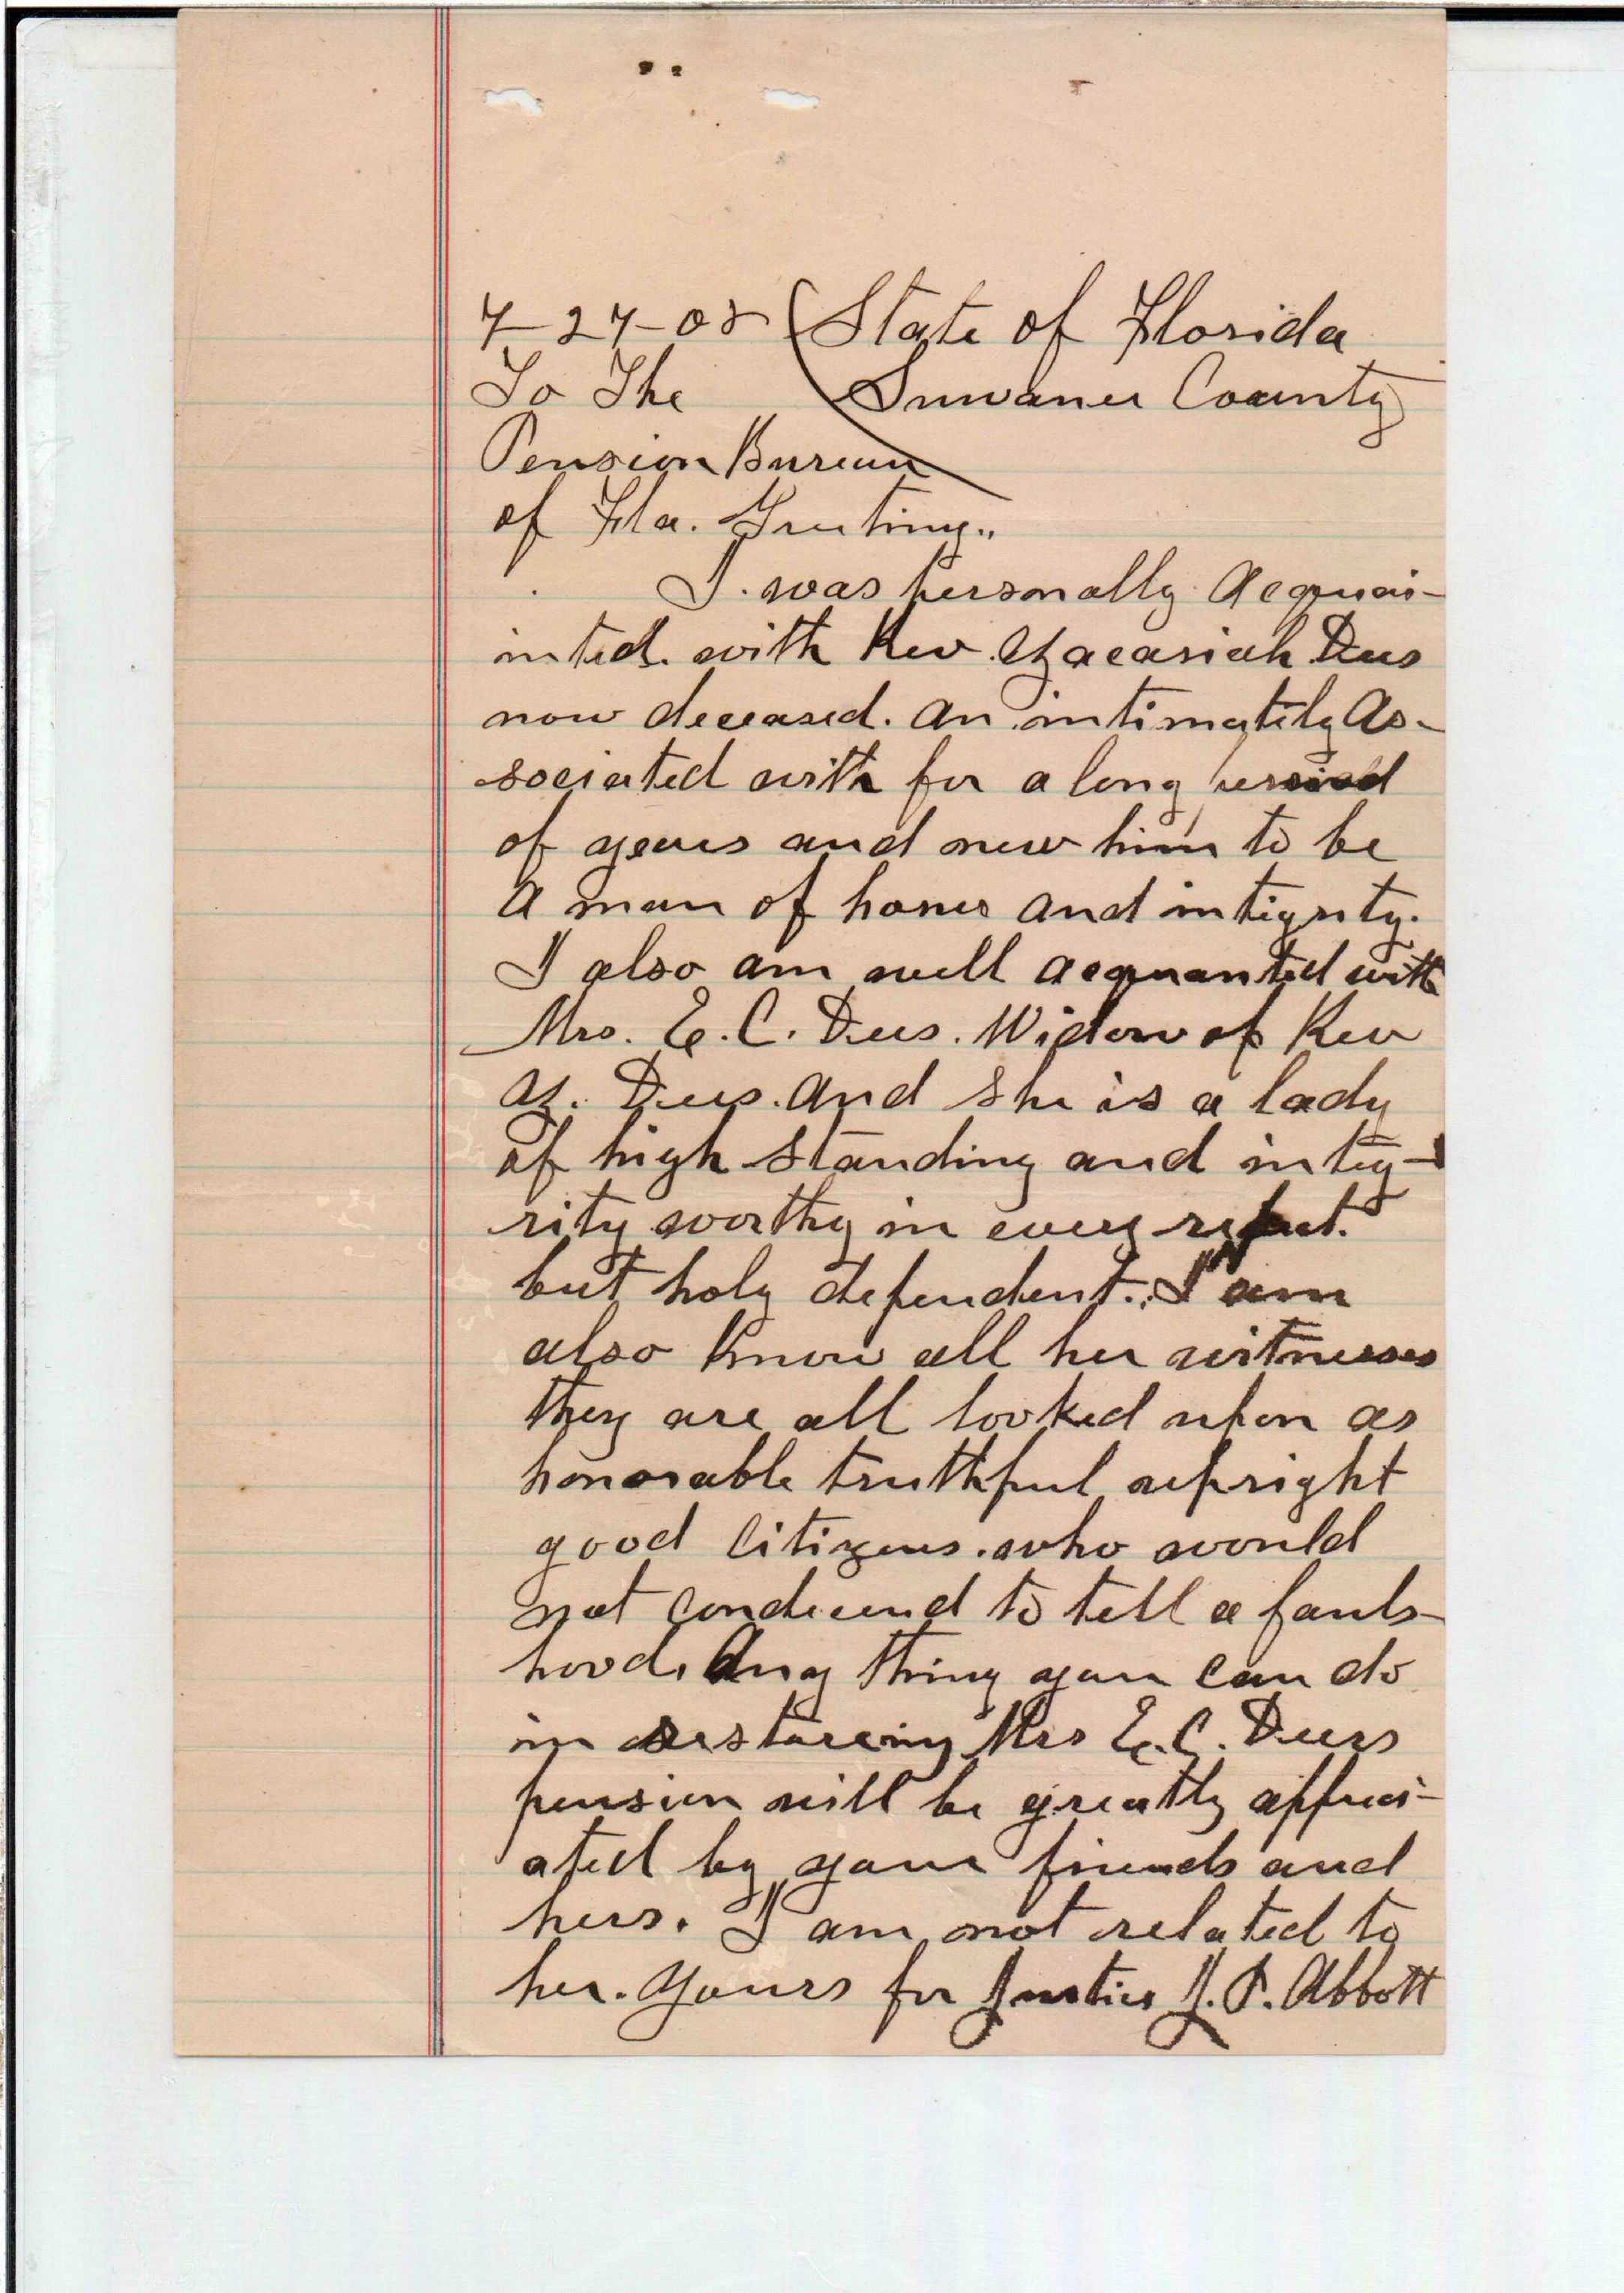 7-27-08 State of Florida
To The Suwanee County
Pension Bureau
of Fla. Greeting..
I. was personally Acquai-
inted. with Rev. Zacariah Dees
now deceased. an intimately As-
sociated with for a long period
of years and new him to be
A man of honer and integrity.
I also am well acquanted with
Mrs. E. C. Dees. Widow of Rev
Z. Dees. And she is a lady
of high standing and integ-
rity worthy in every
but holy dependent. I am
also know all her witnesses
they are all looked upon as
honorable truthful upright
good Citizens. who would
not condecend to tell a fauls-
hood. Any thing you can do
in Mrs E. C. Deers
pension will be greatly appreci-
ated by your friends and
hers. I am not related to
her. Yours for Justice J. P. Abbott